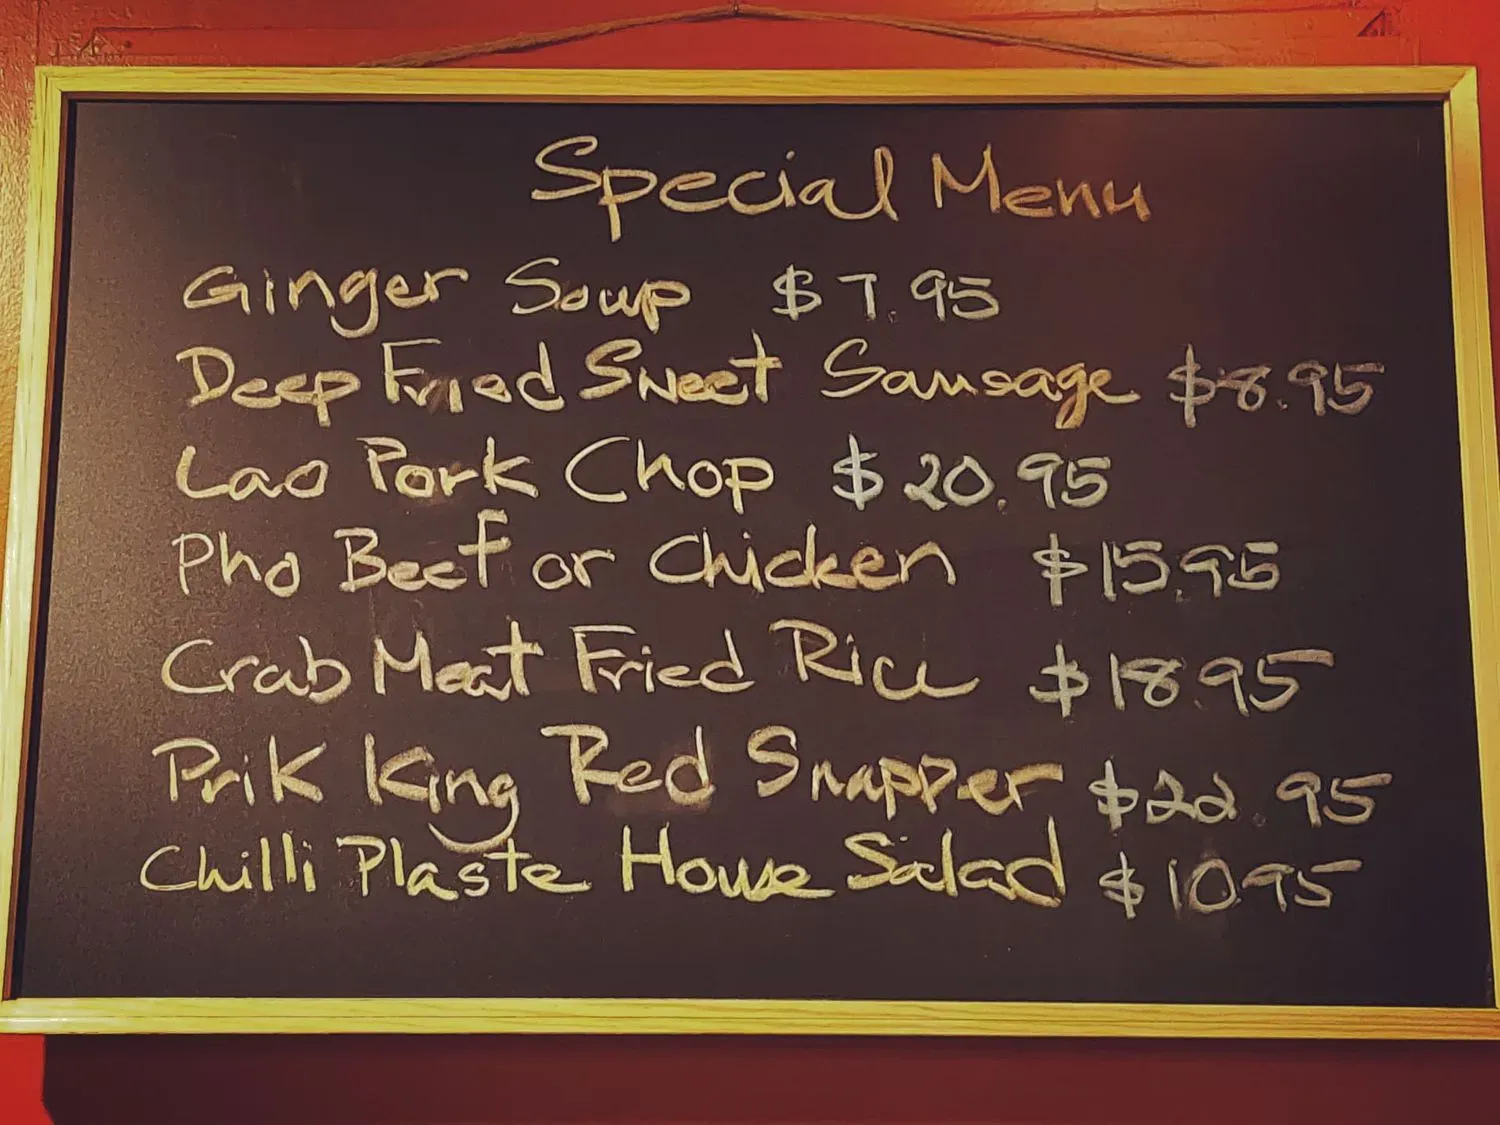 Special Menu
Ginger Soup $7.95
Deep Fried Sweet Sausage $8.95
Lao Pork Chop $20.95
Pho Beef or Chicken $15.95
Crab Meat Fried Rice $18.95
Prik King Red Snapper $22.95
Chilli Plaste House Salad $10.95